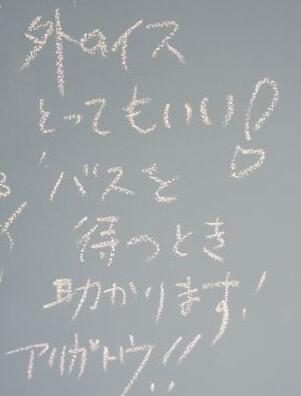 外のイス
とってもいい!
バスを
待つとき
助かります!
アリガトウ!!